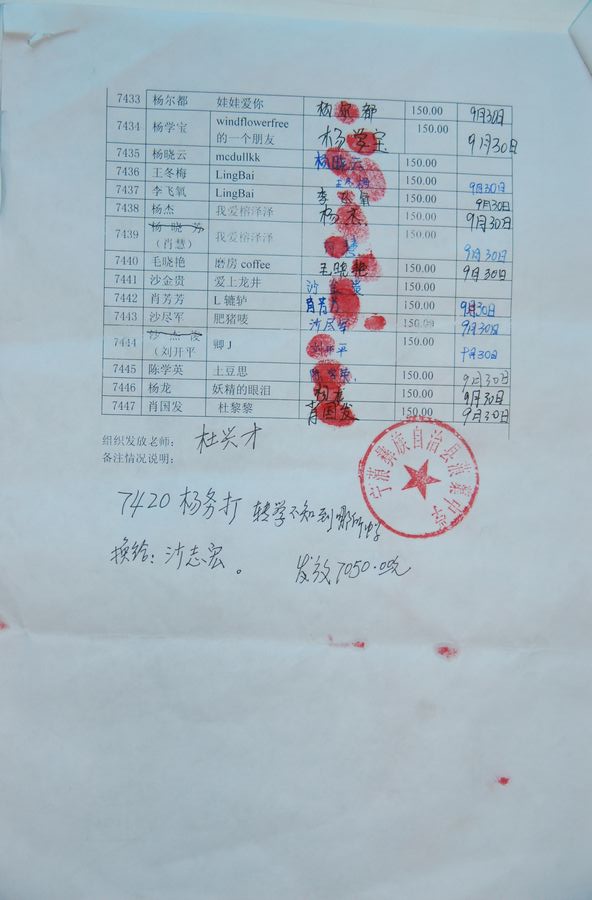 7433 杨尔都 娃娃爱你 杨尔都 150.00 9月30日
7434 杨学宝 windflowerfree 的一个朋友 杨学宝 150.00 9月30日
7435 杨晓云 mcdullkk 杨晓云 150.00
7436 王冬梅 LingBai 王冬梅 150.00 9月30日
7437 李飞氧 LingBai 李飞氧 150.00 9月30日
7438 杨杰 我爱榕泽泽 杨杰 150.00 9月30日
7439 杨晓芳 (肖慧) 我爱榕泽泽 慧 150.00 9月30日
7440 毛晓艳 磨房 coffee 毛晓艳 150.00 9月30日
7441 沙金贵 爱上龙井 沙金贵 150.00
7442 肖芳芳 L 辘轳 肖芳芳 150.00 9月30日
7443 沙尽军 肥猪唛 沙尽军 150.00 9月30日
7444 沙杰俊 (刘开平 卿 J 刘开平 150.00 9月30日
7445 陈学英 土豆思 陈学英 150.00 9月30日
7446 杨龙 妖精的眼泪 杨龙 150.00 9月30日
7447 肖国发 杜黎黎 肖国发 150.00 9月30日
组织发放老师: 杜兴才
备注情况说明:
宁蒗彝族自治县 中学
7420 杨务打 转学不知到哪所中学
换给: 沙志宏。 发放7050.0元